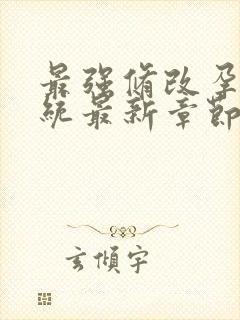 最强脩改孕
統最新章節
玄傾宇